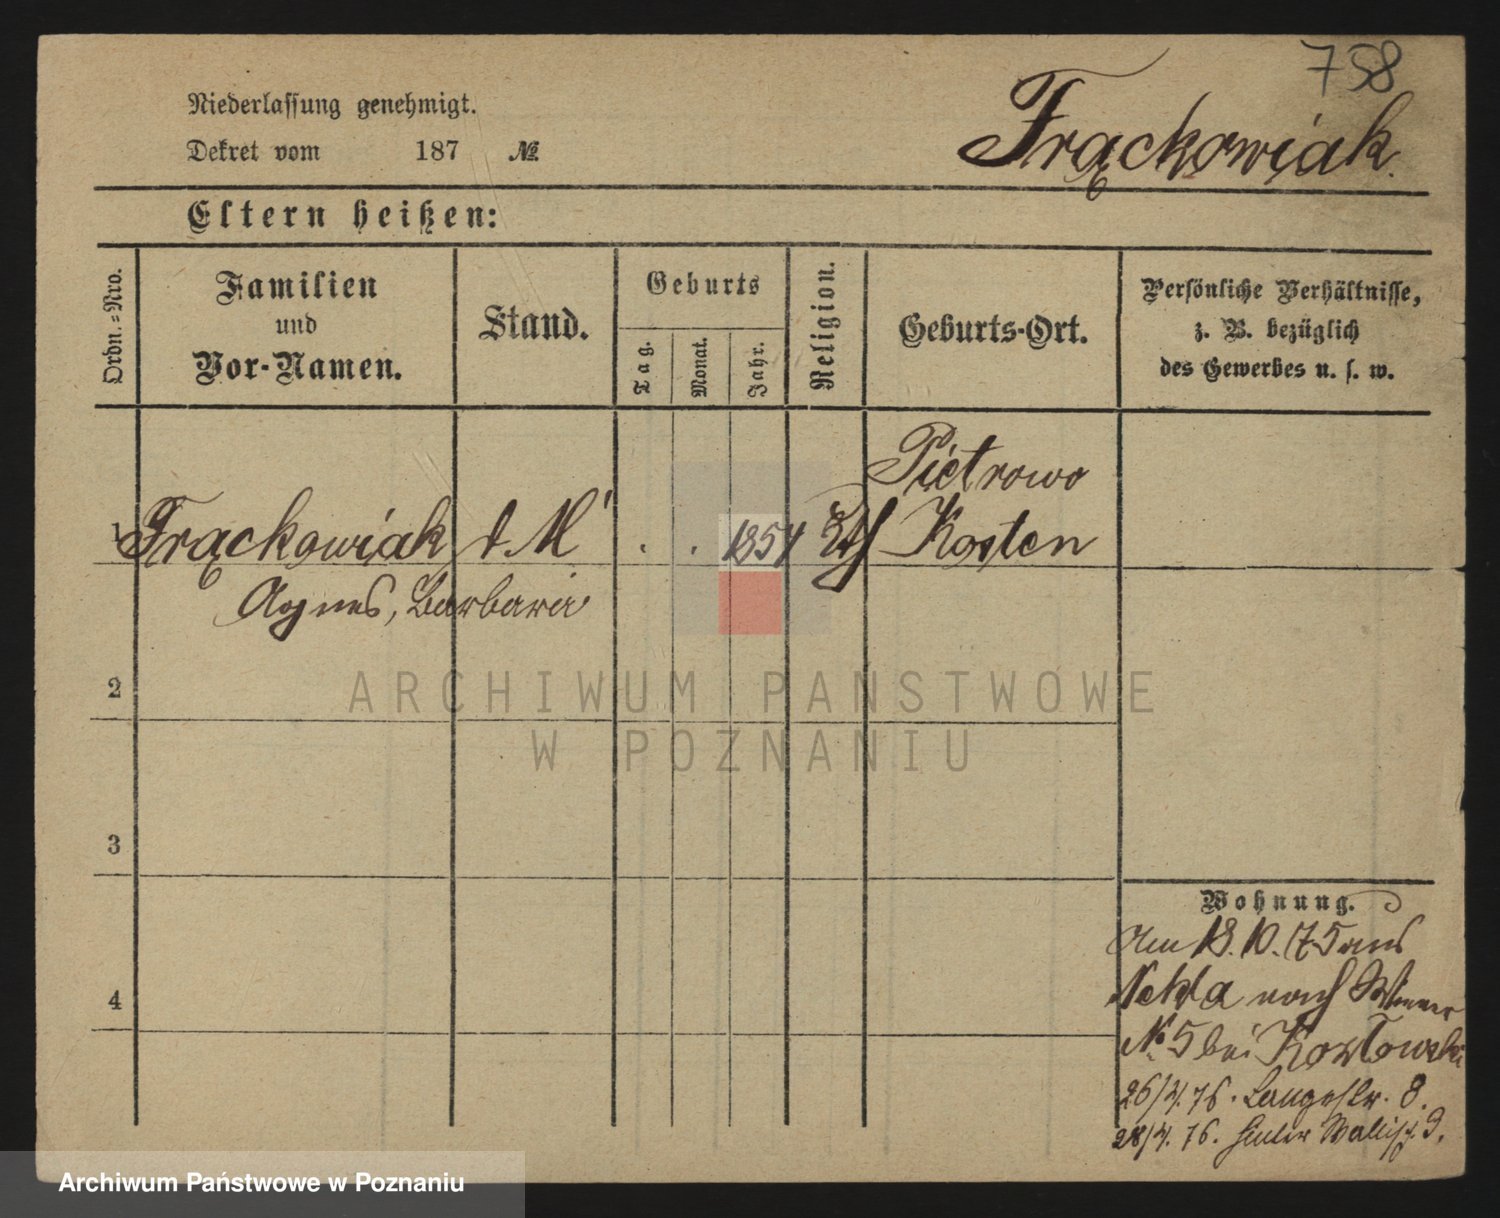 758
Niederlassung genehmigt.
Frąckowiak.
Dekret vom 187 №
Eltern heißen:
Ordn.-Nro.
Familien
und
Vor-Namen.
Stand.
Geburts
Tag.
Monat.
Jahr.
Religion.
Geburts-Ort.
Persönliche Verhältnisse,
z. B. bezüglich
des Gewerbes u. s. w.
Pietrowo
1 Frąckowiak d M . . 1854 Kosten
Agnes, Barbara
2
ARCHIWUM PAŃSTWOWE
W POZNANIU
3
Wohnung.
Am 18. 10. 75 aus
Nekla nach
№ 5 bei Kozlowski
4
26/4. 76. Langestr. 8.
28/4. 76. hinter Wallisch. 9.
Archiwum Państwowe w Poznaniu